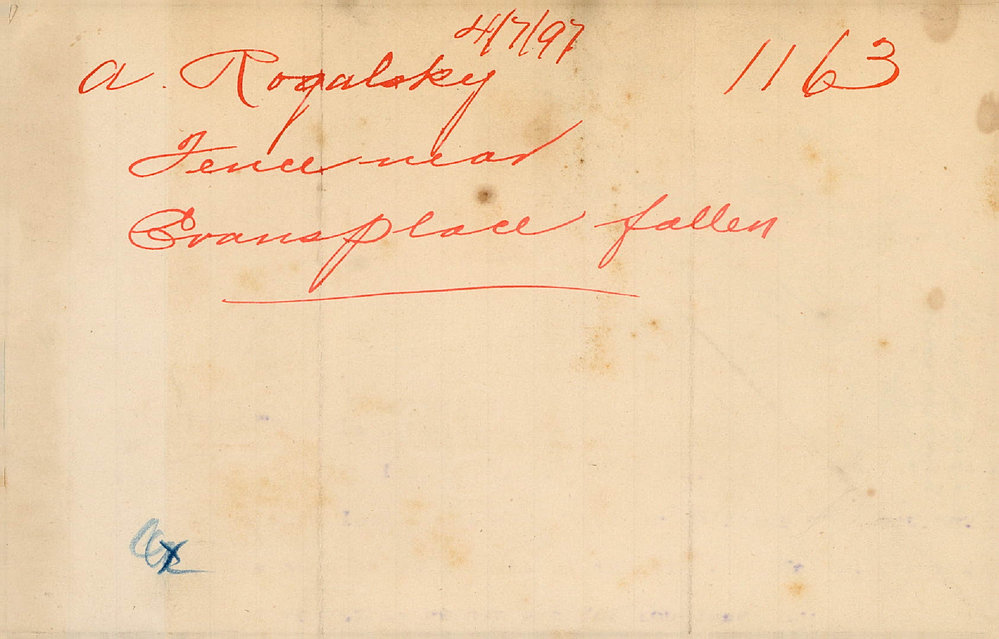 4/7/97
A. Rogalsky 1163
Fence near
Evansplace fallen